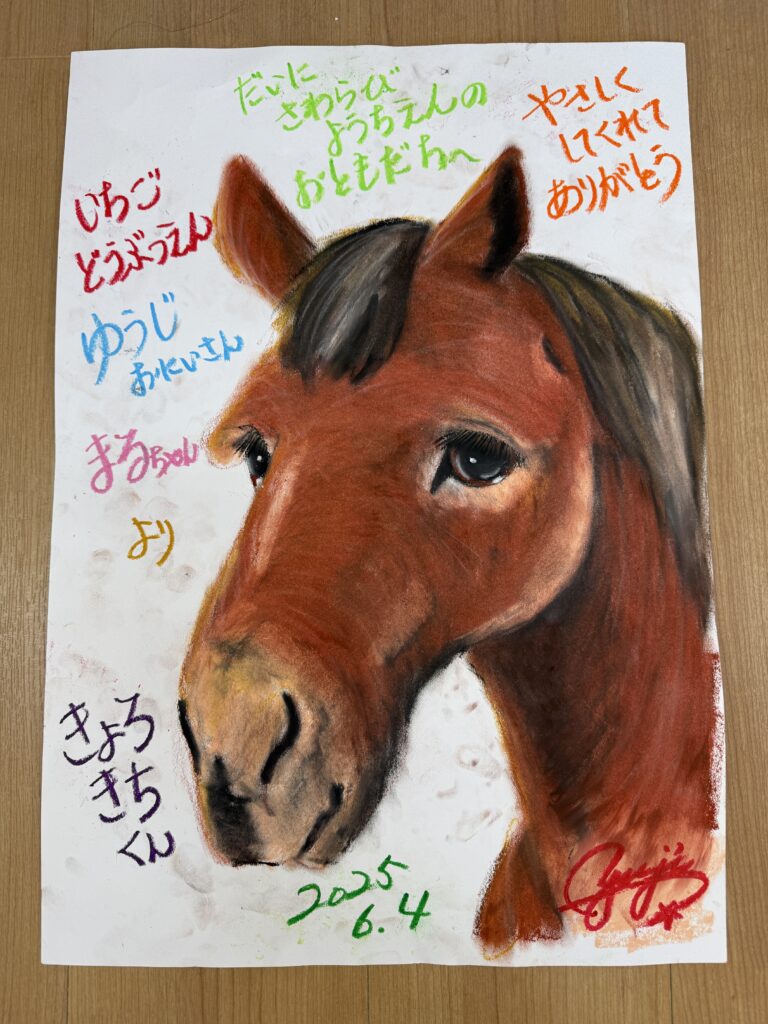 だいに
さわらび
ようちえんの
おともだちへ
やさしく
してくれて
ありがとう
いちご
どうぶつえん
ゆうじ
おにいさん
まるちゃん
より
きょろ
きち
くん
2025
6.4
Yuji